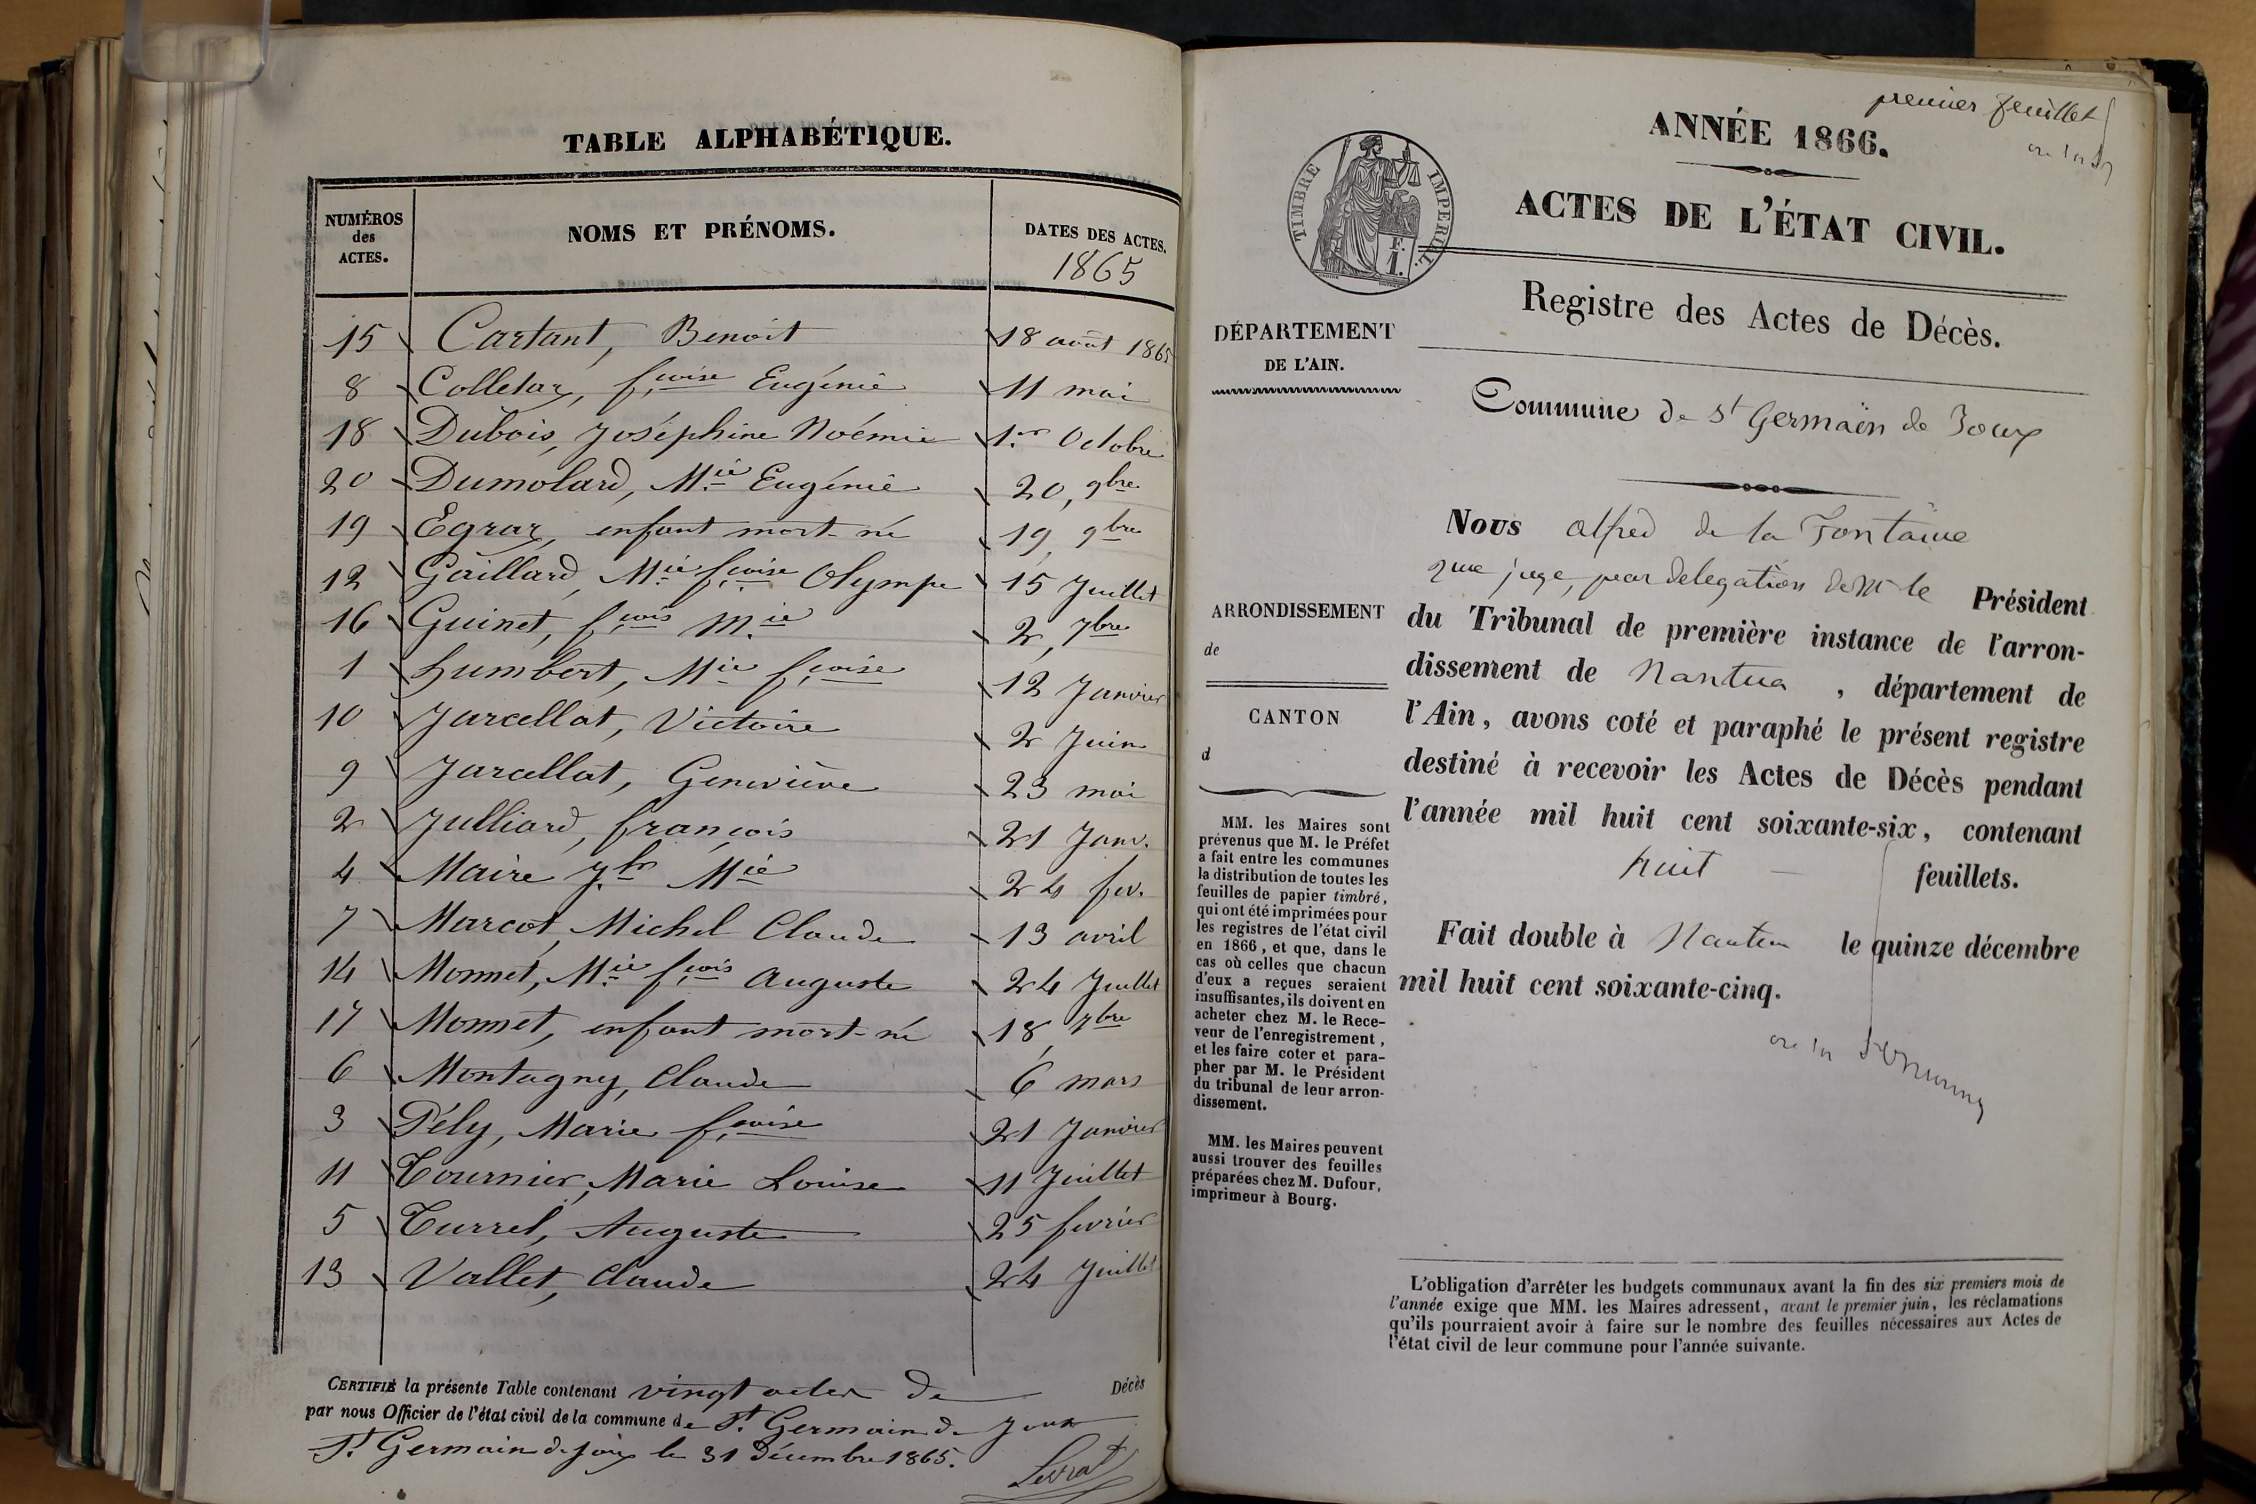 TABLE ALPHABÉTIQUE.
NUMÉROS des ACTES. NOMS ET PRÉNOMS. DATES DES ACTES. 1865
15 Cartant, Benoit 18 août 1865
8 Colletaz, f.çoise Eugénie 11 mai
18 Dubois, Joséphine Noémie 1.er Octobre
20 Dumolard, M.ie Eugénie 20, 9bre
19 Egraz, enfant mort-né 19, 9bre
12 Gaillard, M.ie f.çoise Olympe 15 Juillet
16 Guinet, f.çois M.ie 2, 7bre
1 Humbert, M.ie f.çoise 12 Janvier
10 Jarcellat, Victoire 2 Juin
9 Jarcellat, Geneviève 23 mai
2 Julliard, françois 21 Janv.
4 Maire J.h M.ie 24 fev.
7 Marcot, Michel Claude 13 avril
14 Monnet, M.ie f.çois Auguste 24 Juillet
17 Monnet, enfant mort-né 18, 7bre
6 Montagny, Claude 6 mars
3 Pély, Marie f.çoise 21 Janvier
11 Tournier, Marie Louise 11 Juillet
5 Turrel, Auguste 25 fevrier
13 Vallet, Claude 24 Juillet
CERTIFIÉ la présente Table contenant vingt actes de Décès
par nous Officier de l'état civil de la commune de St Germain de Joux
St Germain de Joux le 31 Décembre 1865.
Levrat
premier feuillet
ANNÉE 1866.
TIMBRE IMPERIAL.
F.
1.
ACTES DE L'ÉTAT CIVIL.
Registre des Actes de Décès.
DÉPARTEMENT
DE L'AIN.
Commune de St Germain de Joux
ARRONDISSEMENT
de
CANTON
d
Nous alfred de la Fontaine
juge, par delegation de Mr le Président
du Tribunal de première instance de l'arron-
dissement de Nantua , département de
l'Ain, avons coté et paraphé le présent registre
destiné à recevoir les Actes de Décès pendant
l'année mil huit cent soixante-six, contenant
huit feuillets.
Fait double à Nantua le quinze décembre
mil huit cent soixante-cinq.
MM. les Maires sont
prévenus que M. le Préfet
a fait entre les communes
la distribution de toutes les
feuilles de papier timbré,
qui ont été imprimées pour
les registres de l'état civil
en 1866, et que, dans le
cas où celles que chacun
d'eux a reçues seraient
insuffisantes, ils doivent en
acheter chez M. le Rece-
veur de l'enregistrement,
et les faire coter et para-
pher par M. le Président
du tribunal de leur arron-
dissement.
MM. les Maires peuvent
aussi trouver des feuilles
préparées chez M. Dufour,
imprimeur à Bourg.
L'obligation d'arrêter les budgets communaux avant la fin des six premiers mois de
l'année exige que MM. les Maires adressent, avant le premier juin, les réclamations
qu'ils pourraient avoir à faire sur le nombre des feuilles nécessaires aux Actes de
l'état civil de leur commune pour l'année suivante.